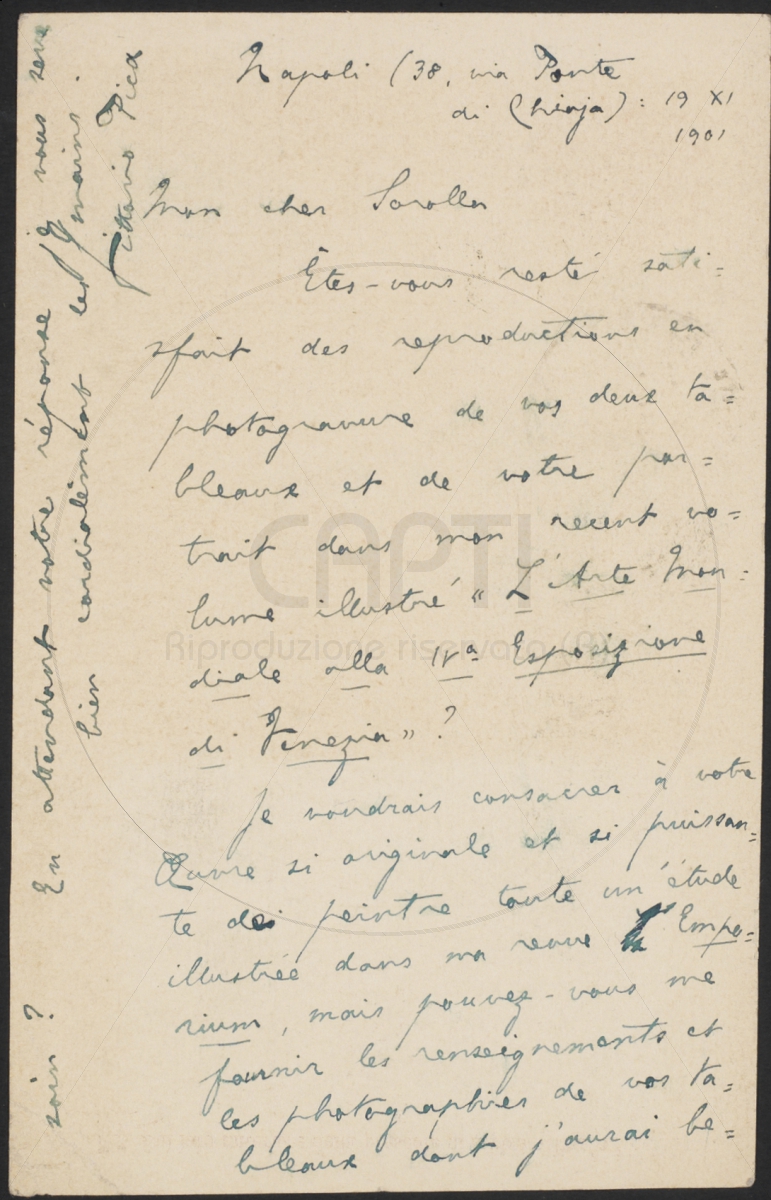 Napoli (38, via Ponte
di Chiaja): 19 XI
1901
Mon cher Sorolla
Êtes-vous resté sati=
sfait des reproductions en
photogravure de vos deux ta=
bleaux et de votre por=
trait dans mon recent vo=
lume illustré "L'Arte Mon=
diale alla IVa Esposizione
di Venezia"?
Je voudrais consacrer à votre
Œuvre si originale et si puissan=
te de peintre toute un'étude
illustrée dans ma revue Empo=
rium, mais pouvez-vous me
fournir les renseignements et
les photographies de vos ta=
bleaux dont j'aurai be=
soin? En attendant votre réponse je vous serre
bien cordialement les mains.
Vittorio Pica
CAPTI
Riproduzione riservata (R)